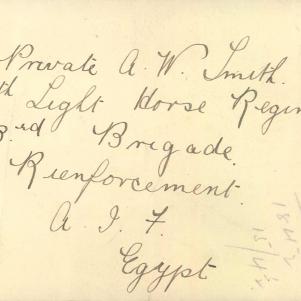 Private A. W. Smith.
th Light Horse Regim
3rd Brigade.
Rienforcement.
A. I. F.
Egypt